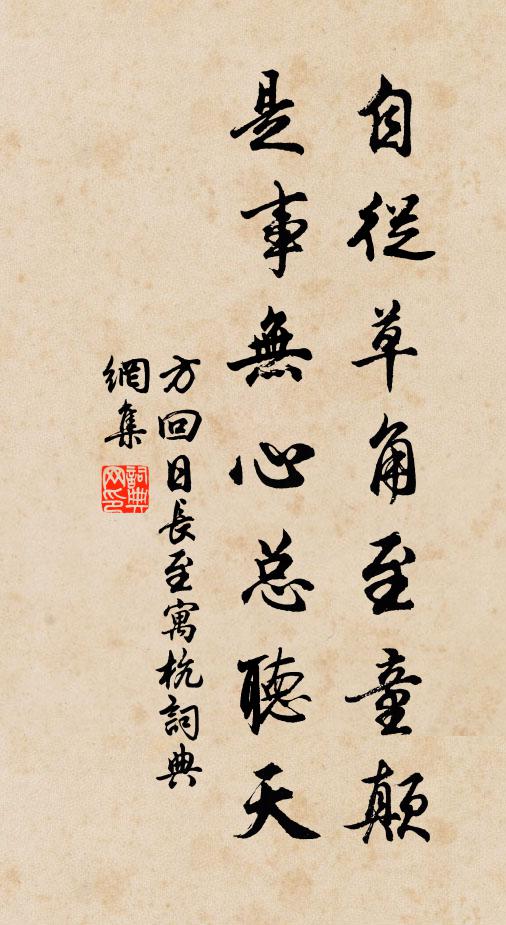 自從草角至童顛
是事無心总聽天
方回日長至寓杭詞典
網集
詞典網印